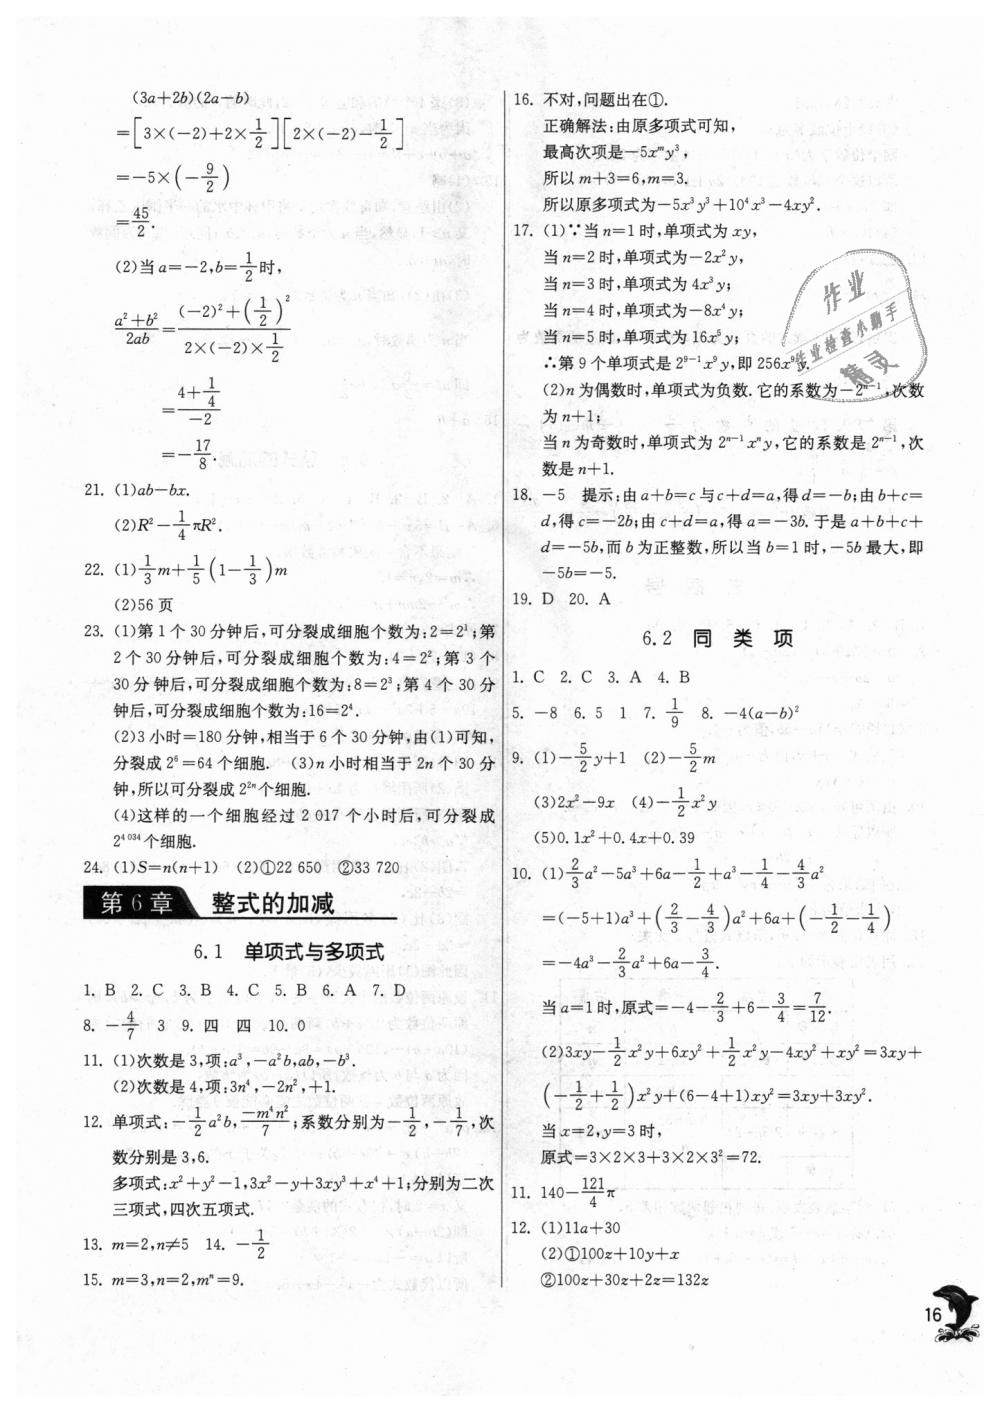 (3a+2b)(2a-b)
=[3×(-2)+2×1/2][2×(-2)-1/2]
=-5×(-9/2)
=45/2.
(2)当a=-2,b=1/2时,
(a²+b²)/(2ab)=((-2)²+(1/2)²)/(2×(-2)×1/2)
=(4+1/4)/(-2)
=-17/8.
21. (1)ab-bx.
(2)R²-1/4πR².
22. (1)1/3m+1/5(1-1/3)m
(2)56页
23. (1)第1个30分钟后,可分裂成细胞个数为:2=2¹;第
2个30分钟后,可分裂成细胞个数为:4=2²;第3个
30分钟后,可分裂成细胞个数为:8=2³;第4个30分
钟后,可分裂成细胞个数为:16=2⁴.
(2)3小时=180分钟,相当于6个30分钟,由(1)可知,
分裂成2⁶=64个细胞. (3)n小时相当于2n个30分
钟,所以可分裂成2²ⁿ个细胞.
(4)这样的一个细胞经过2 017个小时后,可分裂成
2⁴ ⁰³⁴个细胞.
24. (1)S=n(n+1) (2)①22 650 ②33 720
第6章 整式的加减
6.1 单项式与多项式
1. B 2. C 3. B 4. C 5. B 6. A 7. D
8. -4/7 3 9. 四 四 10. 0
11. (1)次数是3,项:a³,-a²b,ab,-b³.
(2)次数是4,项:3n⁴,-2n²,+1.
12. 单项式:-1/2a²b,(-m⁴n²)/7;系数分别为-1/2,-1/7,次
数分别是3,6.
多项式:x²+y²-1,3x²-y+3xy³+x⁴+1;分别为二次
三项式,四次五项式.
13. m=2,n≠5 14. -1/2
15. m=3,n=2,mⁿ=9.
16. 不对,问题出在①.
正确解法:由原多项式可知,
最高次项是-5xᵐy³,
所以m+3=6,m=3.
所以原多项式为-5x³y³+10⁴x³-4xy².
17. (1)∵当n=1时,单项式为xy,
当n=2时,单项式为-2x²y,
当n=3时,单项式为4x³y;
当n=4时,单项式为-8x⁴y;
当n=5时,单项式为16x⁵y;
∴第9个单项式是2⁹⁻¹x⁹y,即256x⁹y.
(2)n为偶数时,单项式为负数.它的系数为-2ⁿ⁻¹,次数
为n+1;
当n为奇数时,单项式为2ⁿ⁻¹xⁿy,它的系数是2ⁿ⁻¹,次
数是n+1.
18. -5 提示:由a+b=c与c+d=a,得d=-b;由b+c=
d,得c=-2b;由c+d=a,得a=-3b.于是a+b+c+
d=-5b,而b为正整数,所以当b=1时,-5b最大,即
-5b=-5.
19. D 20. A
6.2 同类项
1. C 2. C 3. A 4. B
5. -8 6. 5 1 7. 1/9 8. -4(a-b)²
9. (1)-5/2y+1 (2)-5/2m
(3)2x²-9x (4)-1/2x²y
(5)0.1x²+0.4x+0.39
10. (1)2/3a²-5a³+6a-1/2+a³-1/4-4/3a²
=(-5+1)a³+(2/3-4/3)a²+6a+(-1/2-1/4)
=-4a³-2/3a²+6a-3/4.
当a=1时,原式=-4-2/3+6-3/4=7/12.
(2)3xy-1/2x²y+6xy²+1/2x²y-4xy²+xy²=3xy+
(-1/2+1/2)x²y+(6-4+1)xy²=3xy+3xy².
当x=2,y=3时,
原式=3×2×3+3×2×3²=72.
11. 140-121/4π
12. (1)11a+30
(2)①100z+10y+x
②100z+30z+2z=132z
作业
作业检查小助手
精灵
16